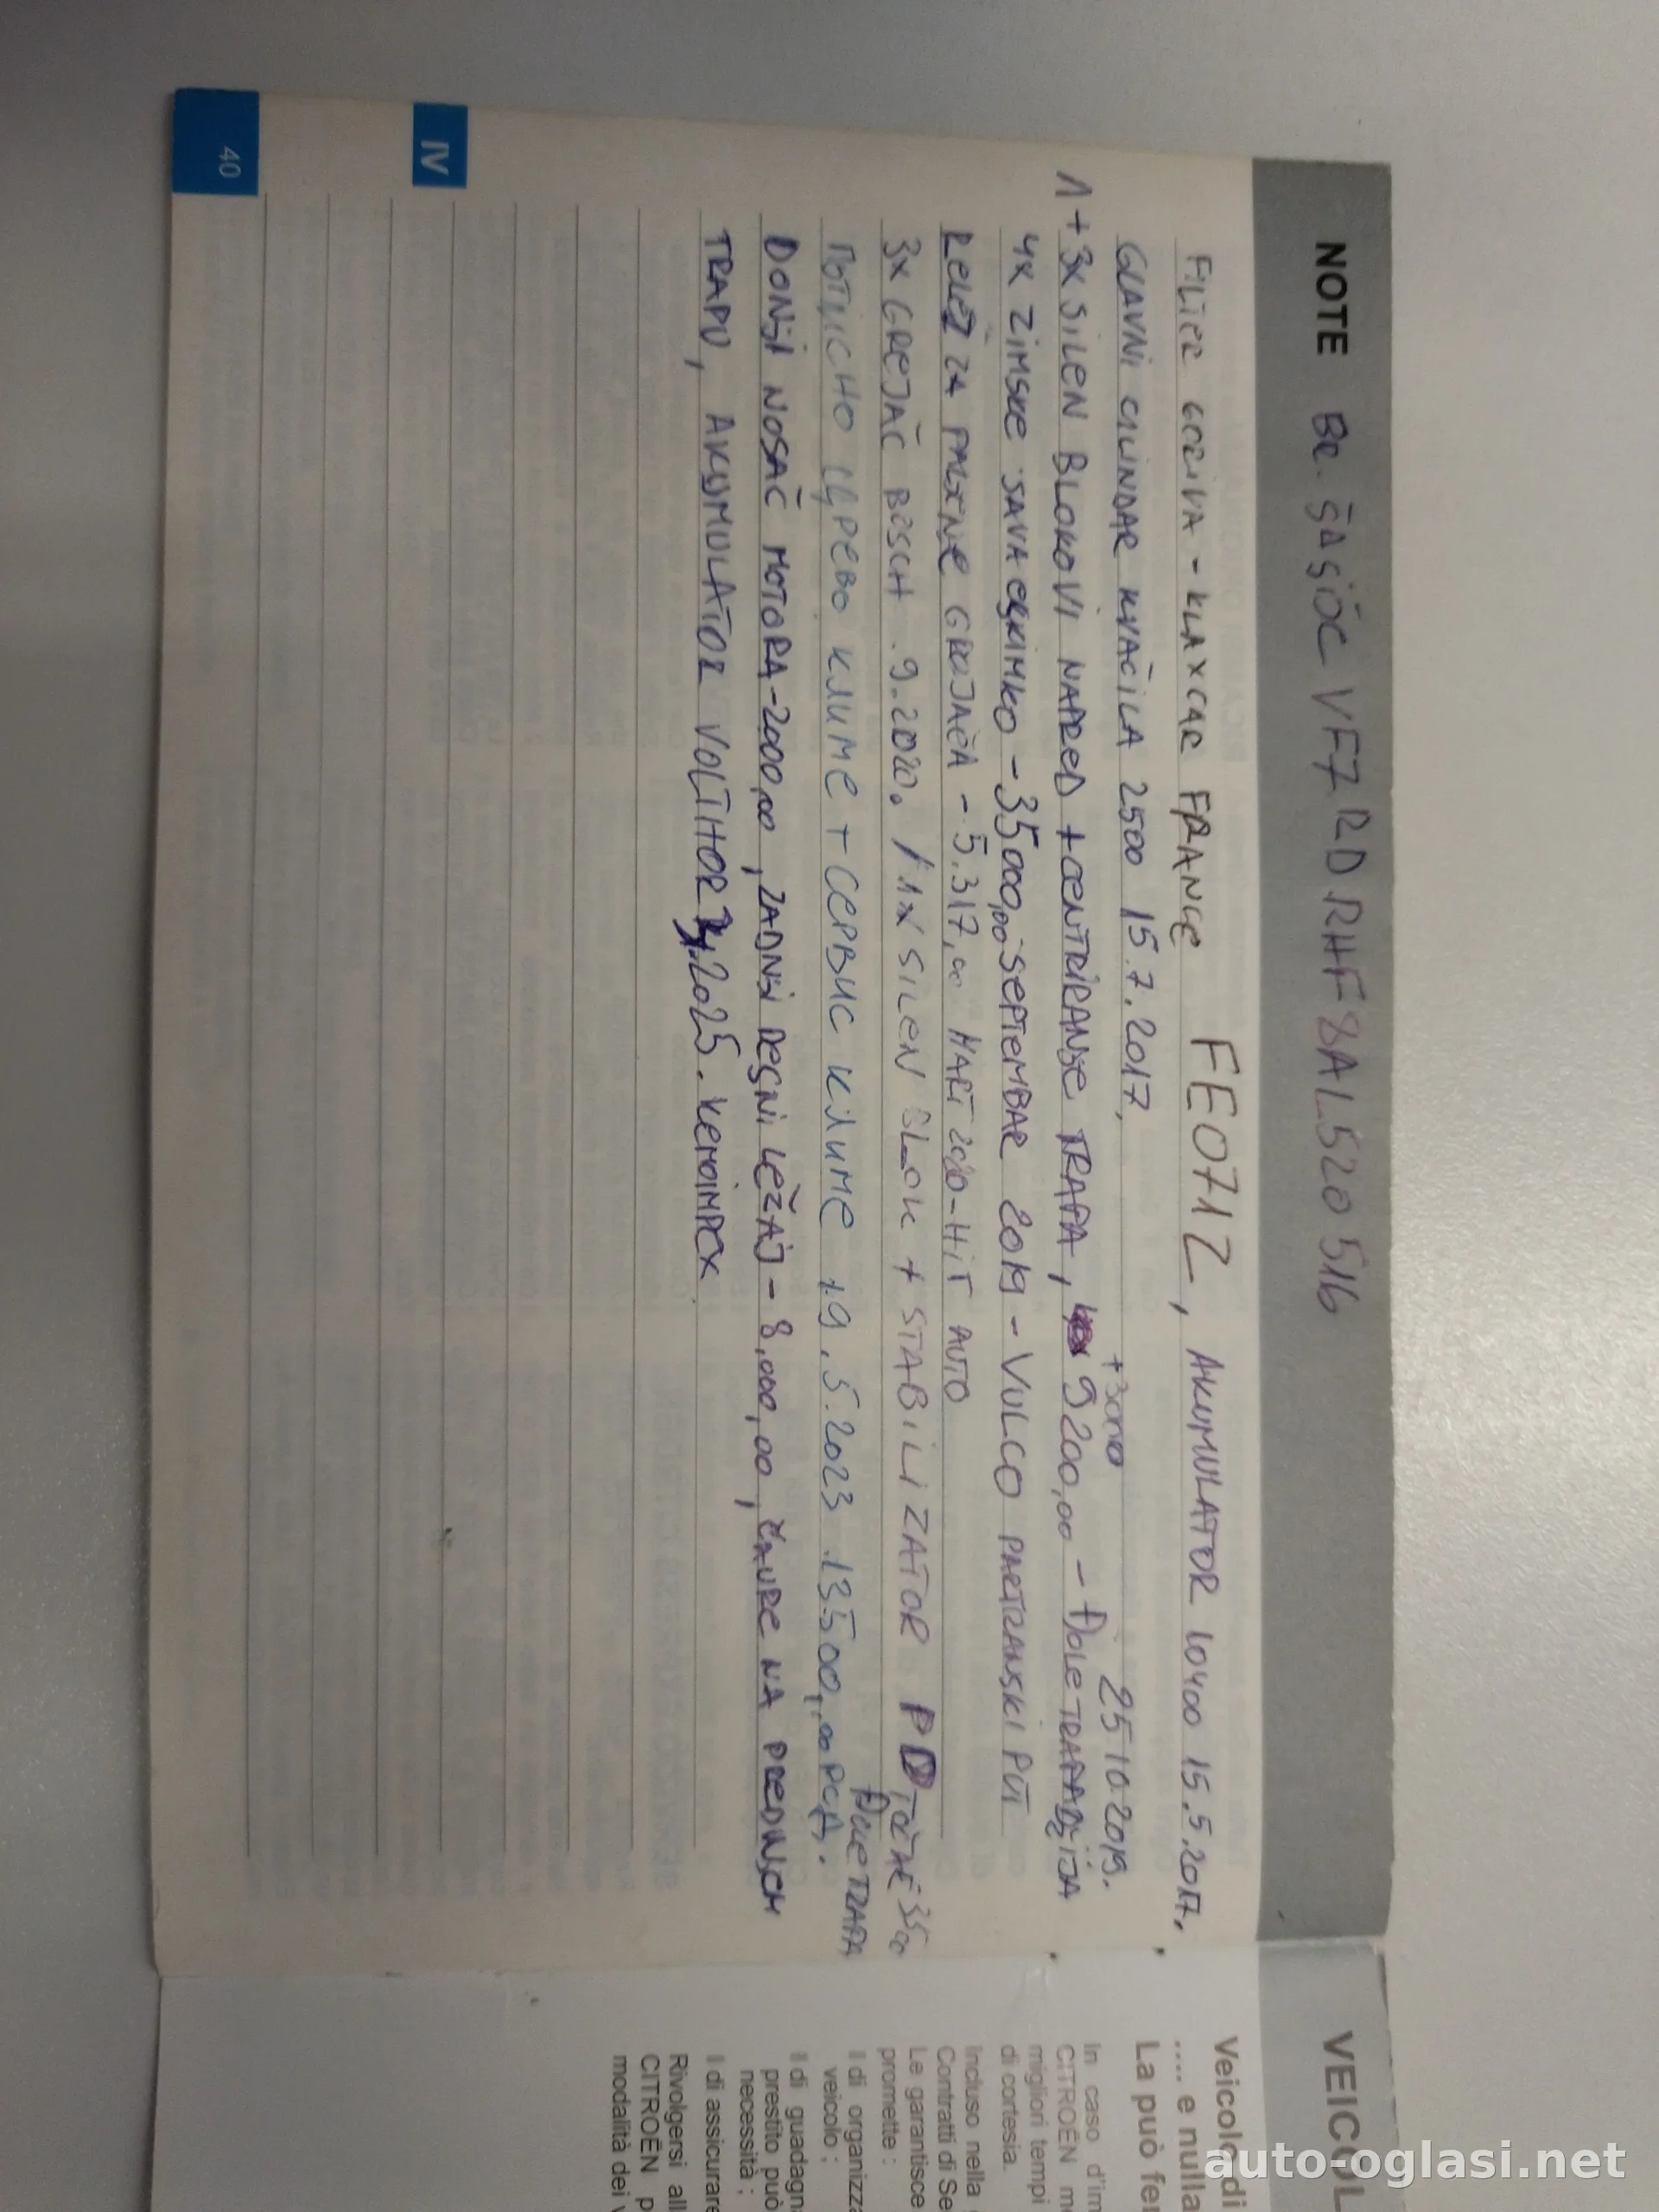 NOTE Br. ŠASIJE VF7RDRHF8AL520516
FILTER GORIVA - KLAXCAR FRANCE FE071Z, AKUMULATOR 10400 15.5.2017.
GLAVNI CILINDAR KVAČILA 2500 15.7.2017, +3000 25 10 2019.
1+3X SILEN BLOKOVI NAPRED + CENTRIRANJE TRAPA, 9200,00 - ĐOLE TRAPADŽIJA
4X ZIMSKE SAVA ESKIMKO - 35000,00 SEPTEMBAR 2019 - VULCO PARTIZANSKI PUT
RELEJ ZA PALJENJE GREJAČA - 5.317,00 MART 2020 - HIT AUTO
3X GREJAČ BOSCH 9.2020. / 1X SILEN BLOK + STABILIZATOR PD TOČAK 3500
ĐOLE TRAPA
ПОТИСНО ЦРЕВО КЛИМЕ + СЕРВИС КЛИМЕ 19.5.2023 13500,00 РСД.
DONJI NOSAČ MOTORA-2000,00, ZADNJI DESNI LEŽAJ - 8,000,00, ČAURE NA PREDNJEM
TRAPU, AKUMULATOR VOLTHOR 2025. KEMOIMPEX
IV
40
VEICOL
Veicolo di
.... e nulla
La può fer
In caso d'im
CITROËN me
migliori tempi
di cortesia.
Incluso nella
Contratti di Se
Le garantisce
promette :
di organizza
veicolo ;
di guadagn
prestito può
necessità ;
di assicurare
Rivolgersi all
CITROËN p
modalità dei v
auto-oglasi.net